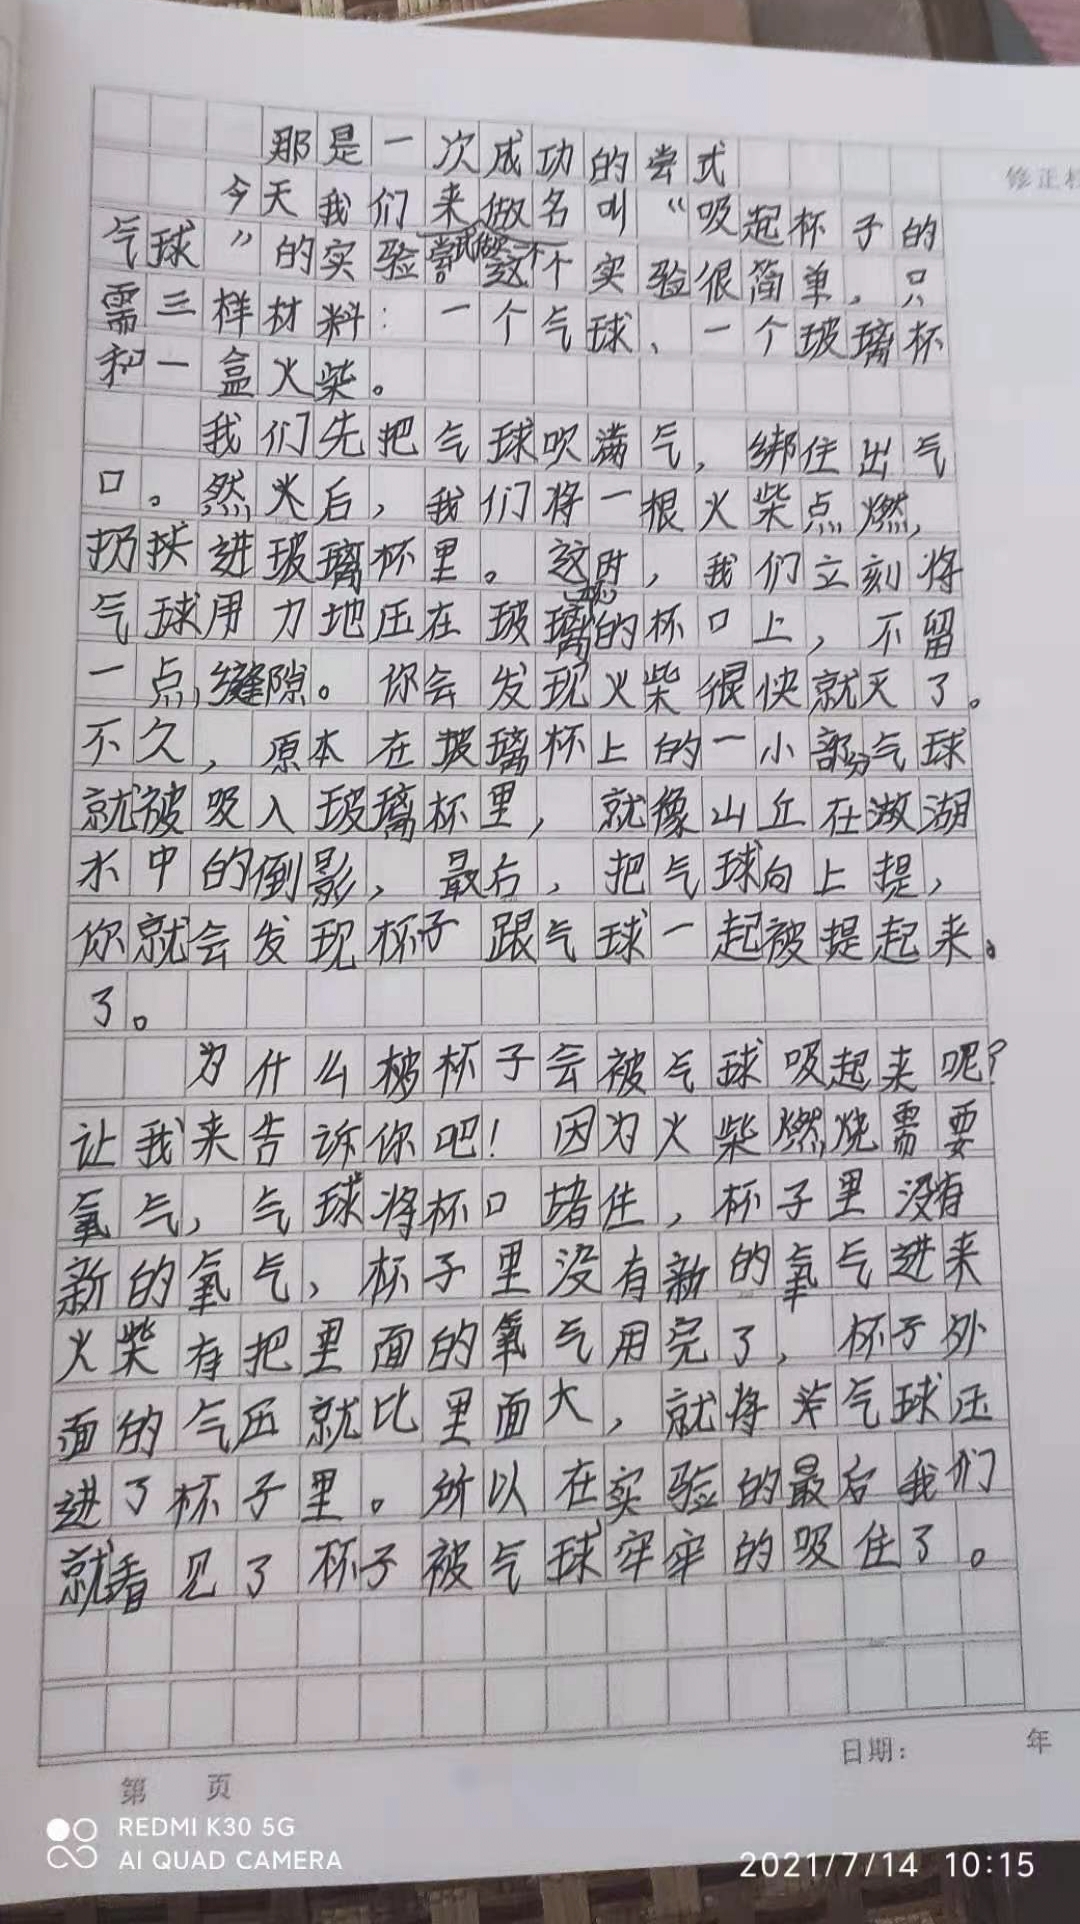 那是一次成功的尝式
今天我们来做名叫“吸起杯子的
气球”的实验。这个实验很简单，只
需三样材料：一个气球、一个玻璃杯
和一盒火柴。
我们先把气球吹满气，绑住出气
口。然后，我们将一根火柴点燃，
扔进玻璃杯里。这时，我们立刻将
气球用力地压在玻璃的杯口上，不留
一点缝隙。你会发现火柴很快就灭了。
不久，原本在玻璃杯上的一小部分气球
就被吸入玻璃杯里，就像山丘在湖
水中的倒影，最后，把气球向上提，
你就会发现杯子跟气球一起被提起来。
了。
为什么杯子会被气球吸起来呢？
让我来告诉你吧！因为火柴燃烧需要
氧气，气球将杯口堵住，杯子里没有
新的氧气，杯子里没有新的氧气进来
火柴有把里面的氧气用完了，杯子外
面的气压就比里面大，就将气球压
进了杯子里。所以在实验的最后我们
就看见了杯子被气球牢牢的吸住了。
修正栏
日期：
年
第 页
REDMI K30 5G
AI QUAD CAMERA
2021/7/14 10:15